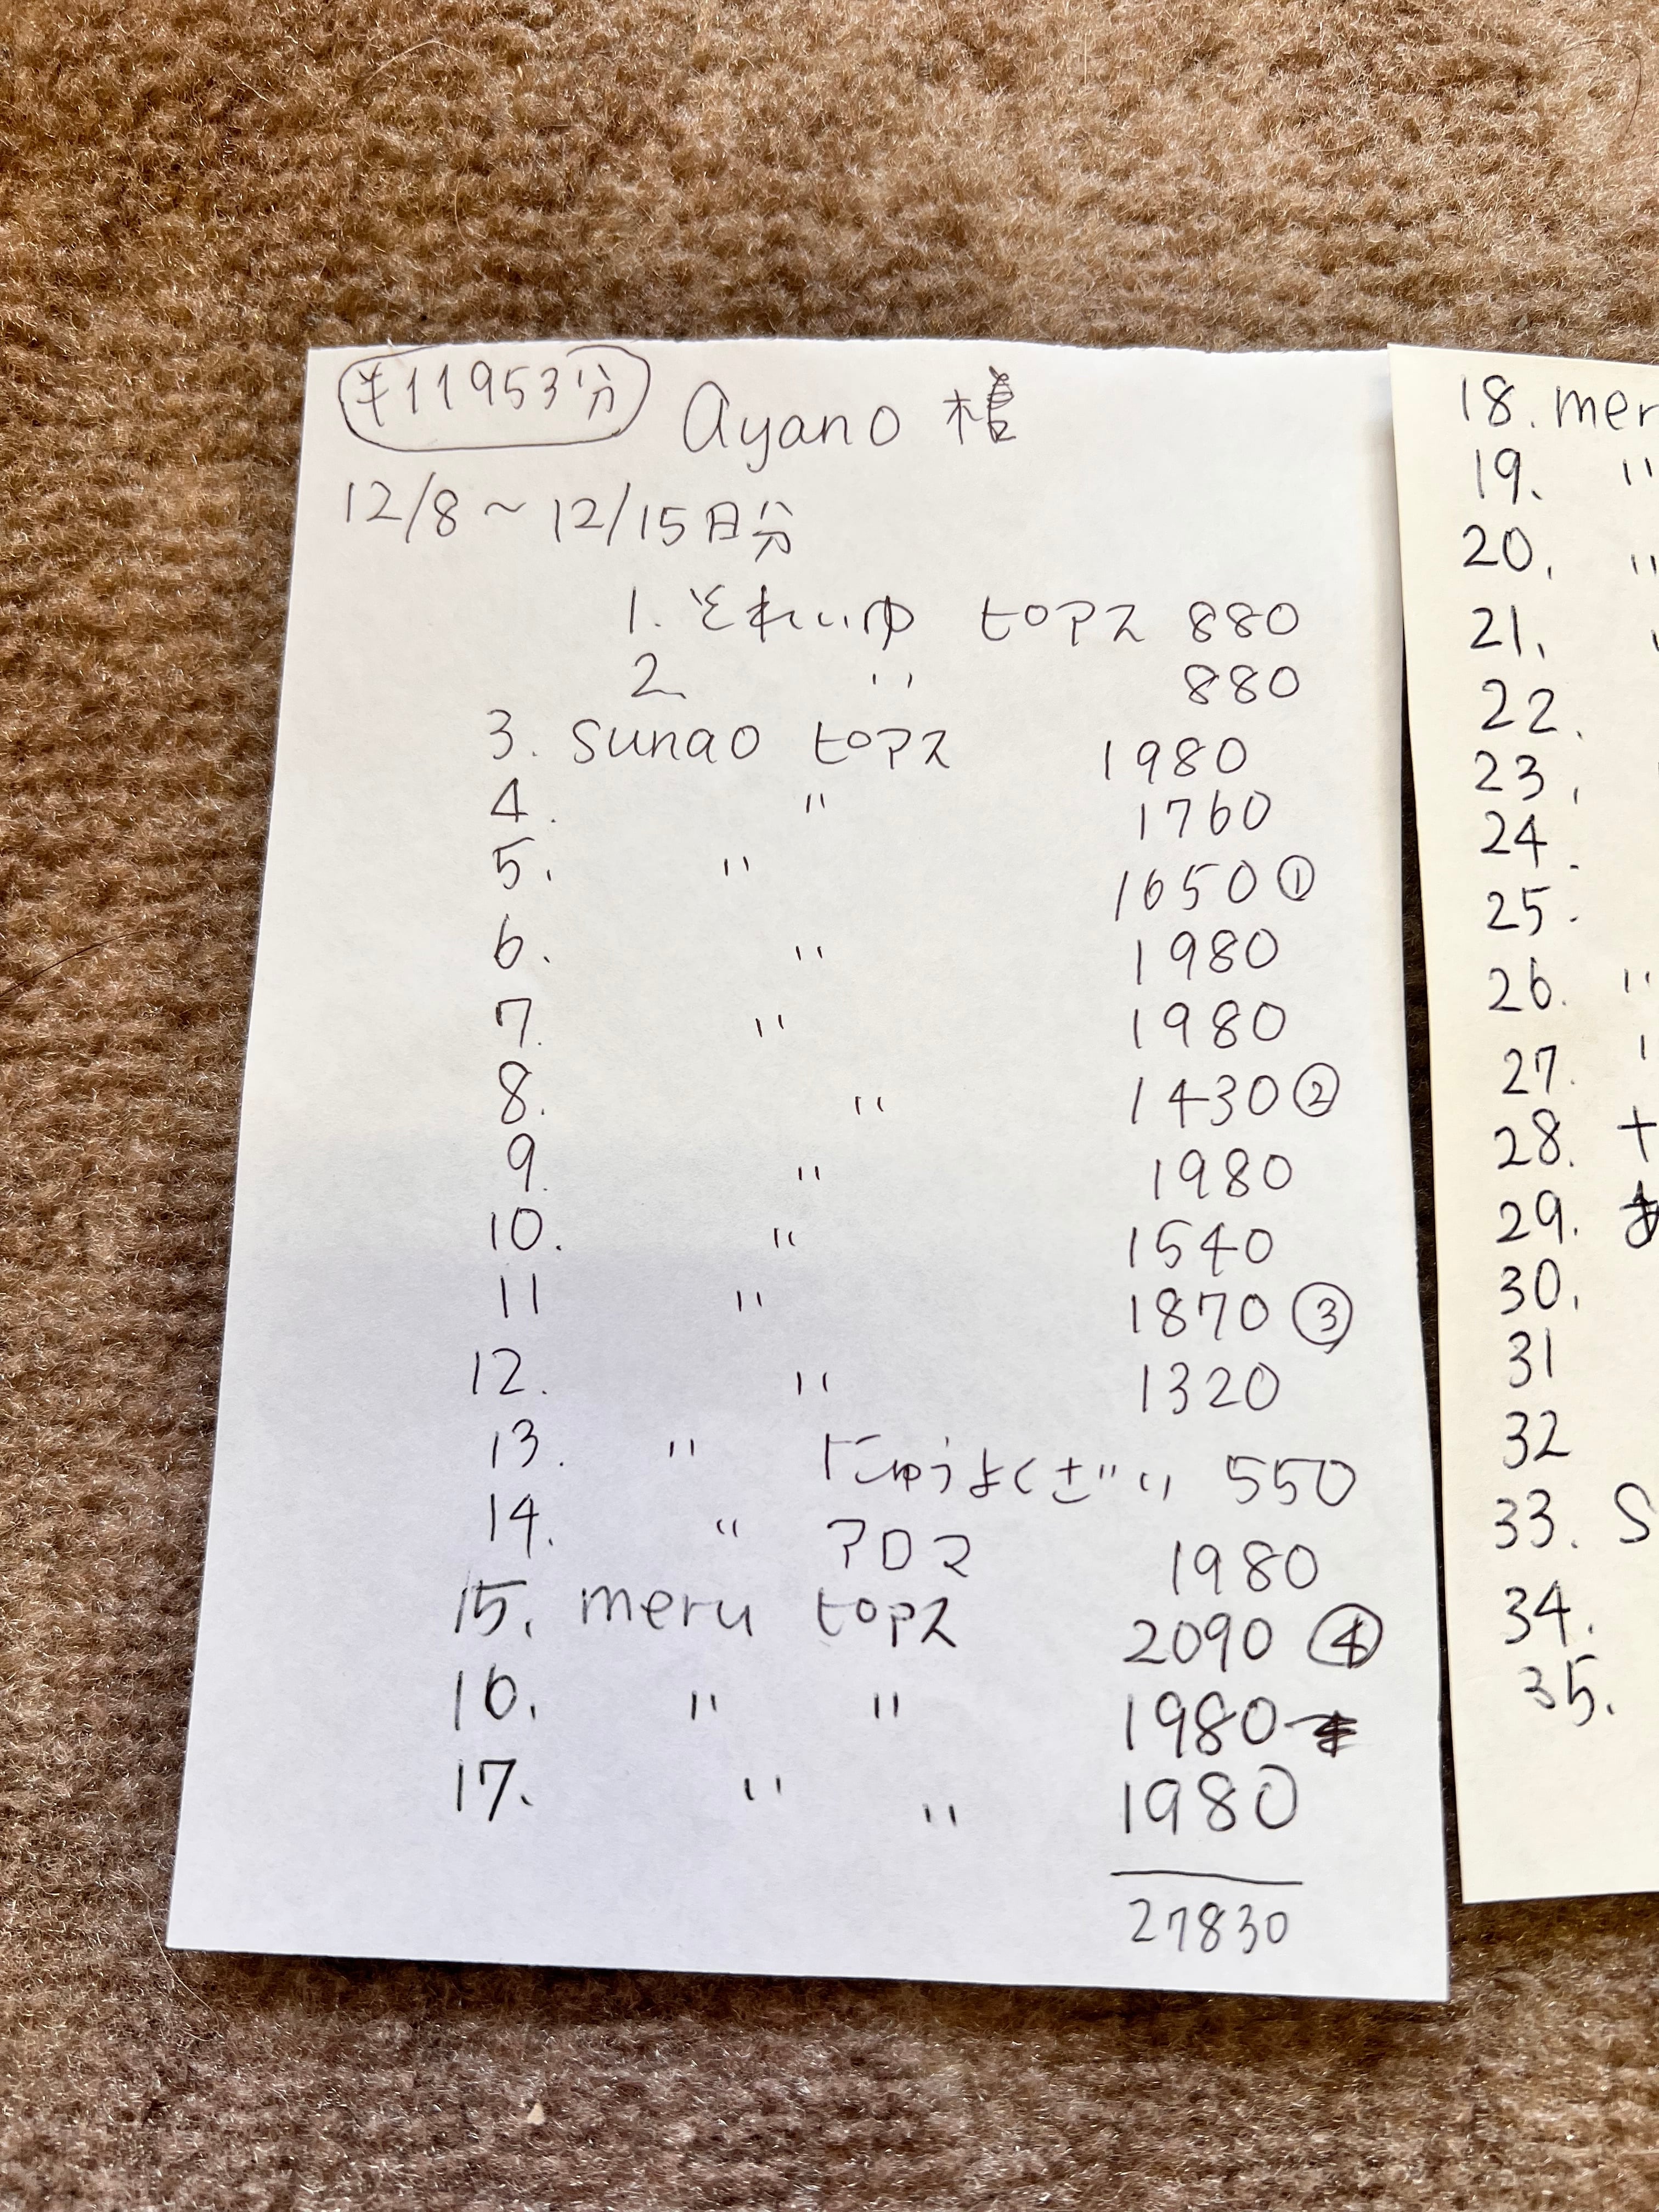 ¥11953分
Ayano 様
12/8～12/15日分
1. それいゆ ピアス 880
2. 〃 880
3. sunao ピアス 1980
4. 〃 1760
5. 〃 1650 ①
6. 〃 1980
7. 〃 1980
8. 〃 1430 ②
9. 〃 1980
10. 〃 1540
11 〃 1870 ③
12. 〃 1320
13. 〃 にゅうよくざい 550
14. 〃 アロマ 1980
15. meru ピアス 2090 ④
16. 〃 〃 1980
17. 〃 〃 1980
27830
18. mer
19. 〃
20. 〃
21.
22.
23.
24.
25.
26. 〃
27.
28.
29.
30.
31
32
33. S
34.
35.